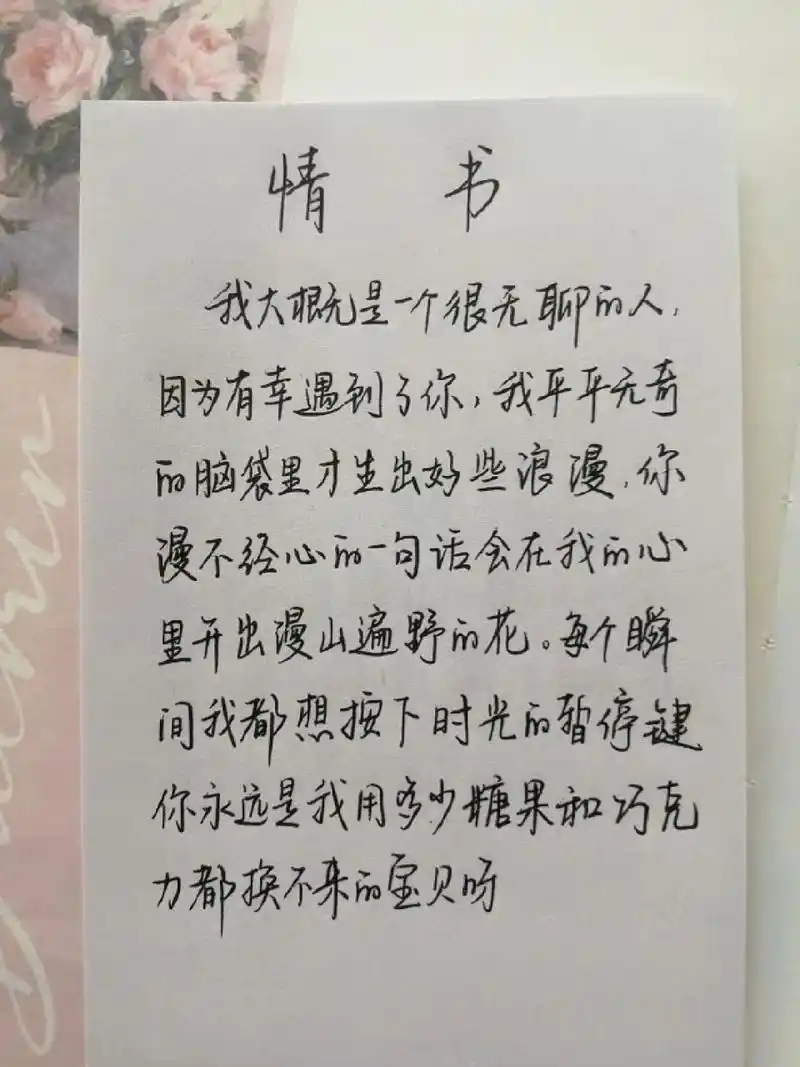 情 书
我大概是一个很无聊的人,
因为有幸遇到了你,我平平无奇
的脑袋里才生出好些浪漫,你
漫不经心的一句话会在我的心
里开出漫山遍野的花。每个瞬
间我都想按下时光的暂停键
你永远是我用多少糖果和巧克
力都换不来的宝贝呀